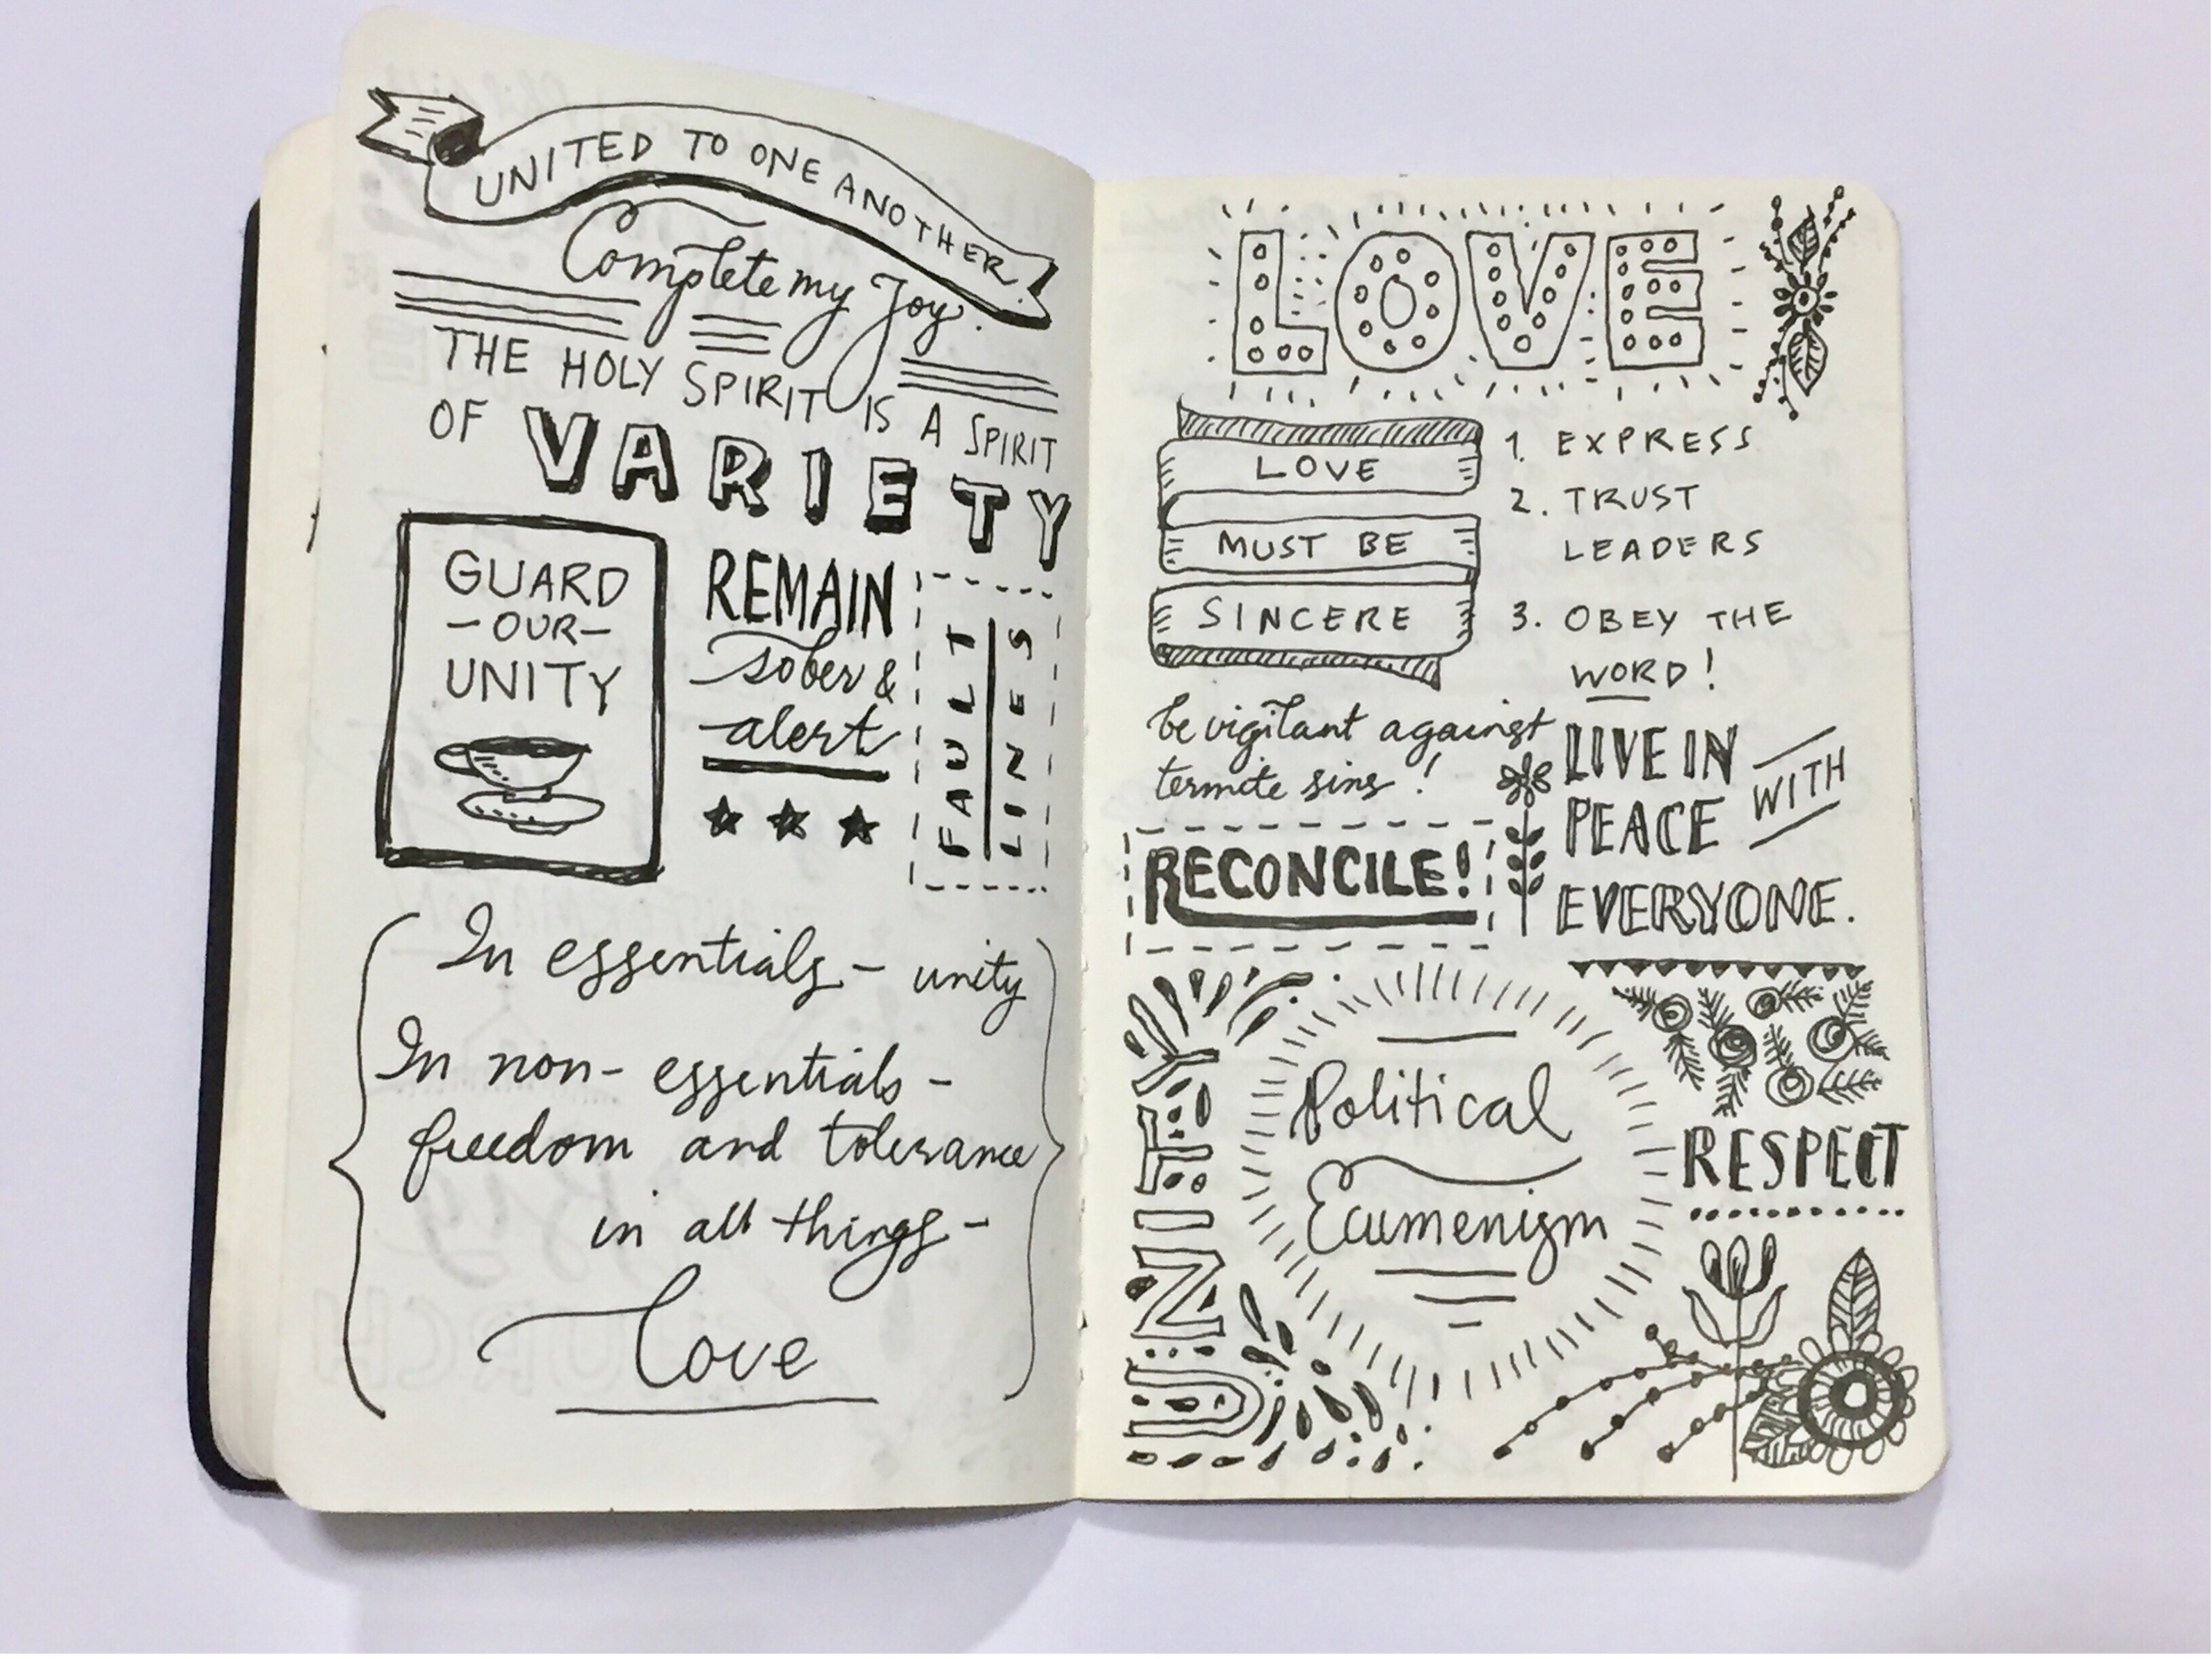 UNITED TO ONE ANOTHER.
Complete my Joy.
THE HOLY SPIRIT IS A SPIRIT
OF VARIETY
GUARD
-OUR-
UNITY
REMAIN
sober &
alert
FAULT
LINES
In essentials - unity
In non-essentials -
freedom and tolerance
in all things -
Love
LOVE
LOVE
MUST BE
SINCERE
1. EXPRESS
2. TRUST
LEADERS
3. OBEY THE
WORD!
be vigilant against
termite sins!
RECONCILE!
LIVE IN
PEACE WITH
EVERYONE.
UNITY
Political
Ecumenism
RESPECT